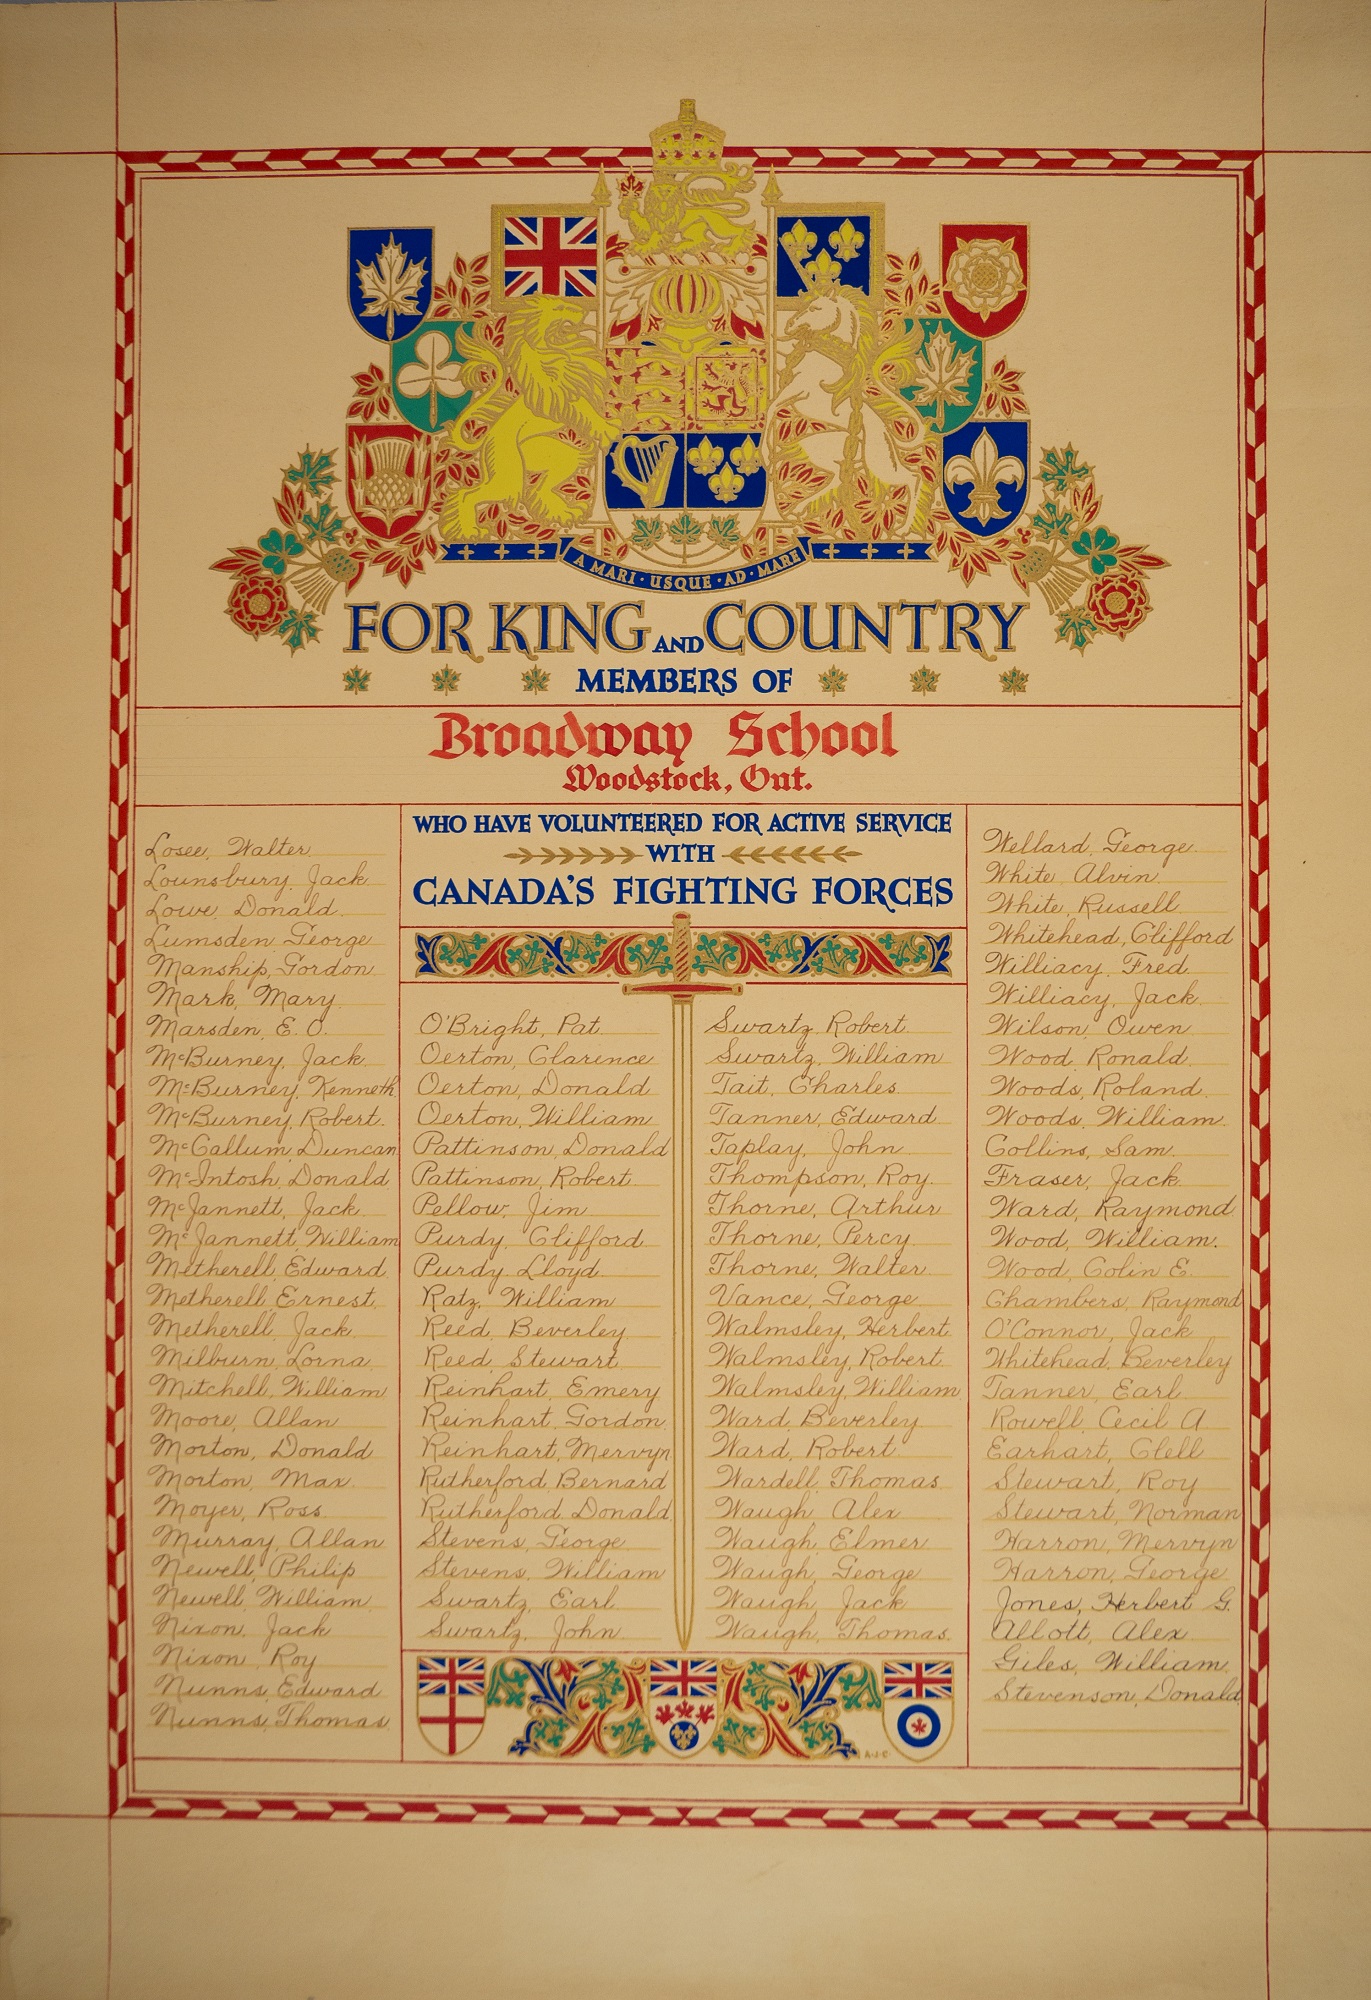 A MARI · USQUE · AD · MARE
FOR KING AND COUNTRY
MEMBERS OF
Broadway School
Woodstock, Ont.
WHO HAVE VOLUNTEERED FOR ACTIVE SERVICE
WITH
CANADA'S FIGHTING FORCES
Losee, Walter
Lounsbury, Jack
Lowe, Donald
Lumsden George
Manship, Gordon
Mark, Mary
Marsden, E. O.
McBurney, Jack
McBurney, Kenneth
McBurney, Robert
McCallum, Duncan
McIntosh, Donald
McJannett, Jack
McJannett, William
Metherell, Edward
Metherell, Ernest
Metherell, Jack
Milburn, Lorna
Mitchell, William
Moore, Allan
Morton, Donald
Morton, Max
Moyer, Ross
Murray, Allan
Newell, Philip
Newell, William
Nixon, Jack
Nixon, Roy
Nunns, Edward
Nunns, Thomas
O'Bright, Pat
Oerton, Clarence
Oerton, Donald
Oerton, William
Pattinson, Donald
Pattinson, Robert
Pellow, Jim
Purdy, Clifford
Purdy, Lloyd
Ratz, William
Reed, Beverley
Reed, Stewart
Reinhart, Emery
Reinhart, Gordon
Reinhart, Mervyn
Rutherford, Bernard
Rutherford, Donald
Stevens, George
Stevens, William
Swartz, Earl
Swartz, John
Swartz, Robert
Swartz, William
Tait, Charles
Tanner, Edward
Taplay, John
Thompson, Roy
Thorne, Arthur
Thorne, Percy
Thorne, Walter
Vance, George
Walmsley, Herbert
Walmsley, Robert
Walmsley, William
Ward, Beverley
Ward, Robert
Wardell, Thomas
Waugh, Alex
Waugh, Elmer
Waugh, George
Waugh, Jack
Waugh, Thomas
Wellard, George
White, Alvin
White, Russell
Whitehead, Clifford
Williacy, Fred
Williacy, Jack
Wilson, Owen
Wood, Ronald
Woods, Roland
Woods, William
Collins, Sam
Fraser, Jack
Ward, Raymond
Wood, William.
Wood, Colin E.
Chambers, Raymond
O'Connor, Jack
Whitehead, Beverley
Tanner, Earl
Rowell, Cecil A
Earhart, Clell
Stewart, Roy
Stewart, Norman
Harron, Mervyn
Harron, George
Jones, Herbert G.
Allott, Alex
Giles, William
Stevenson, Donald
A.J.C.